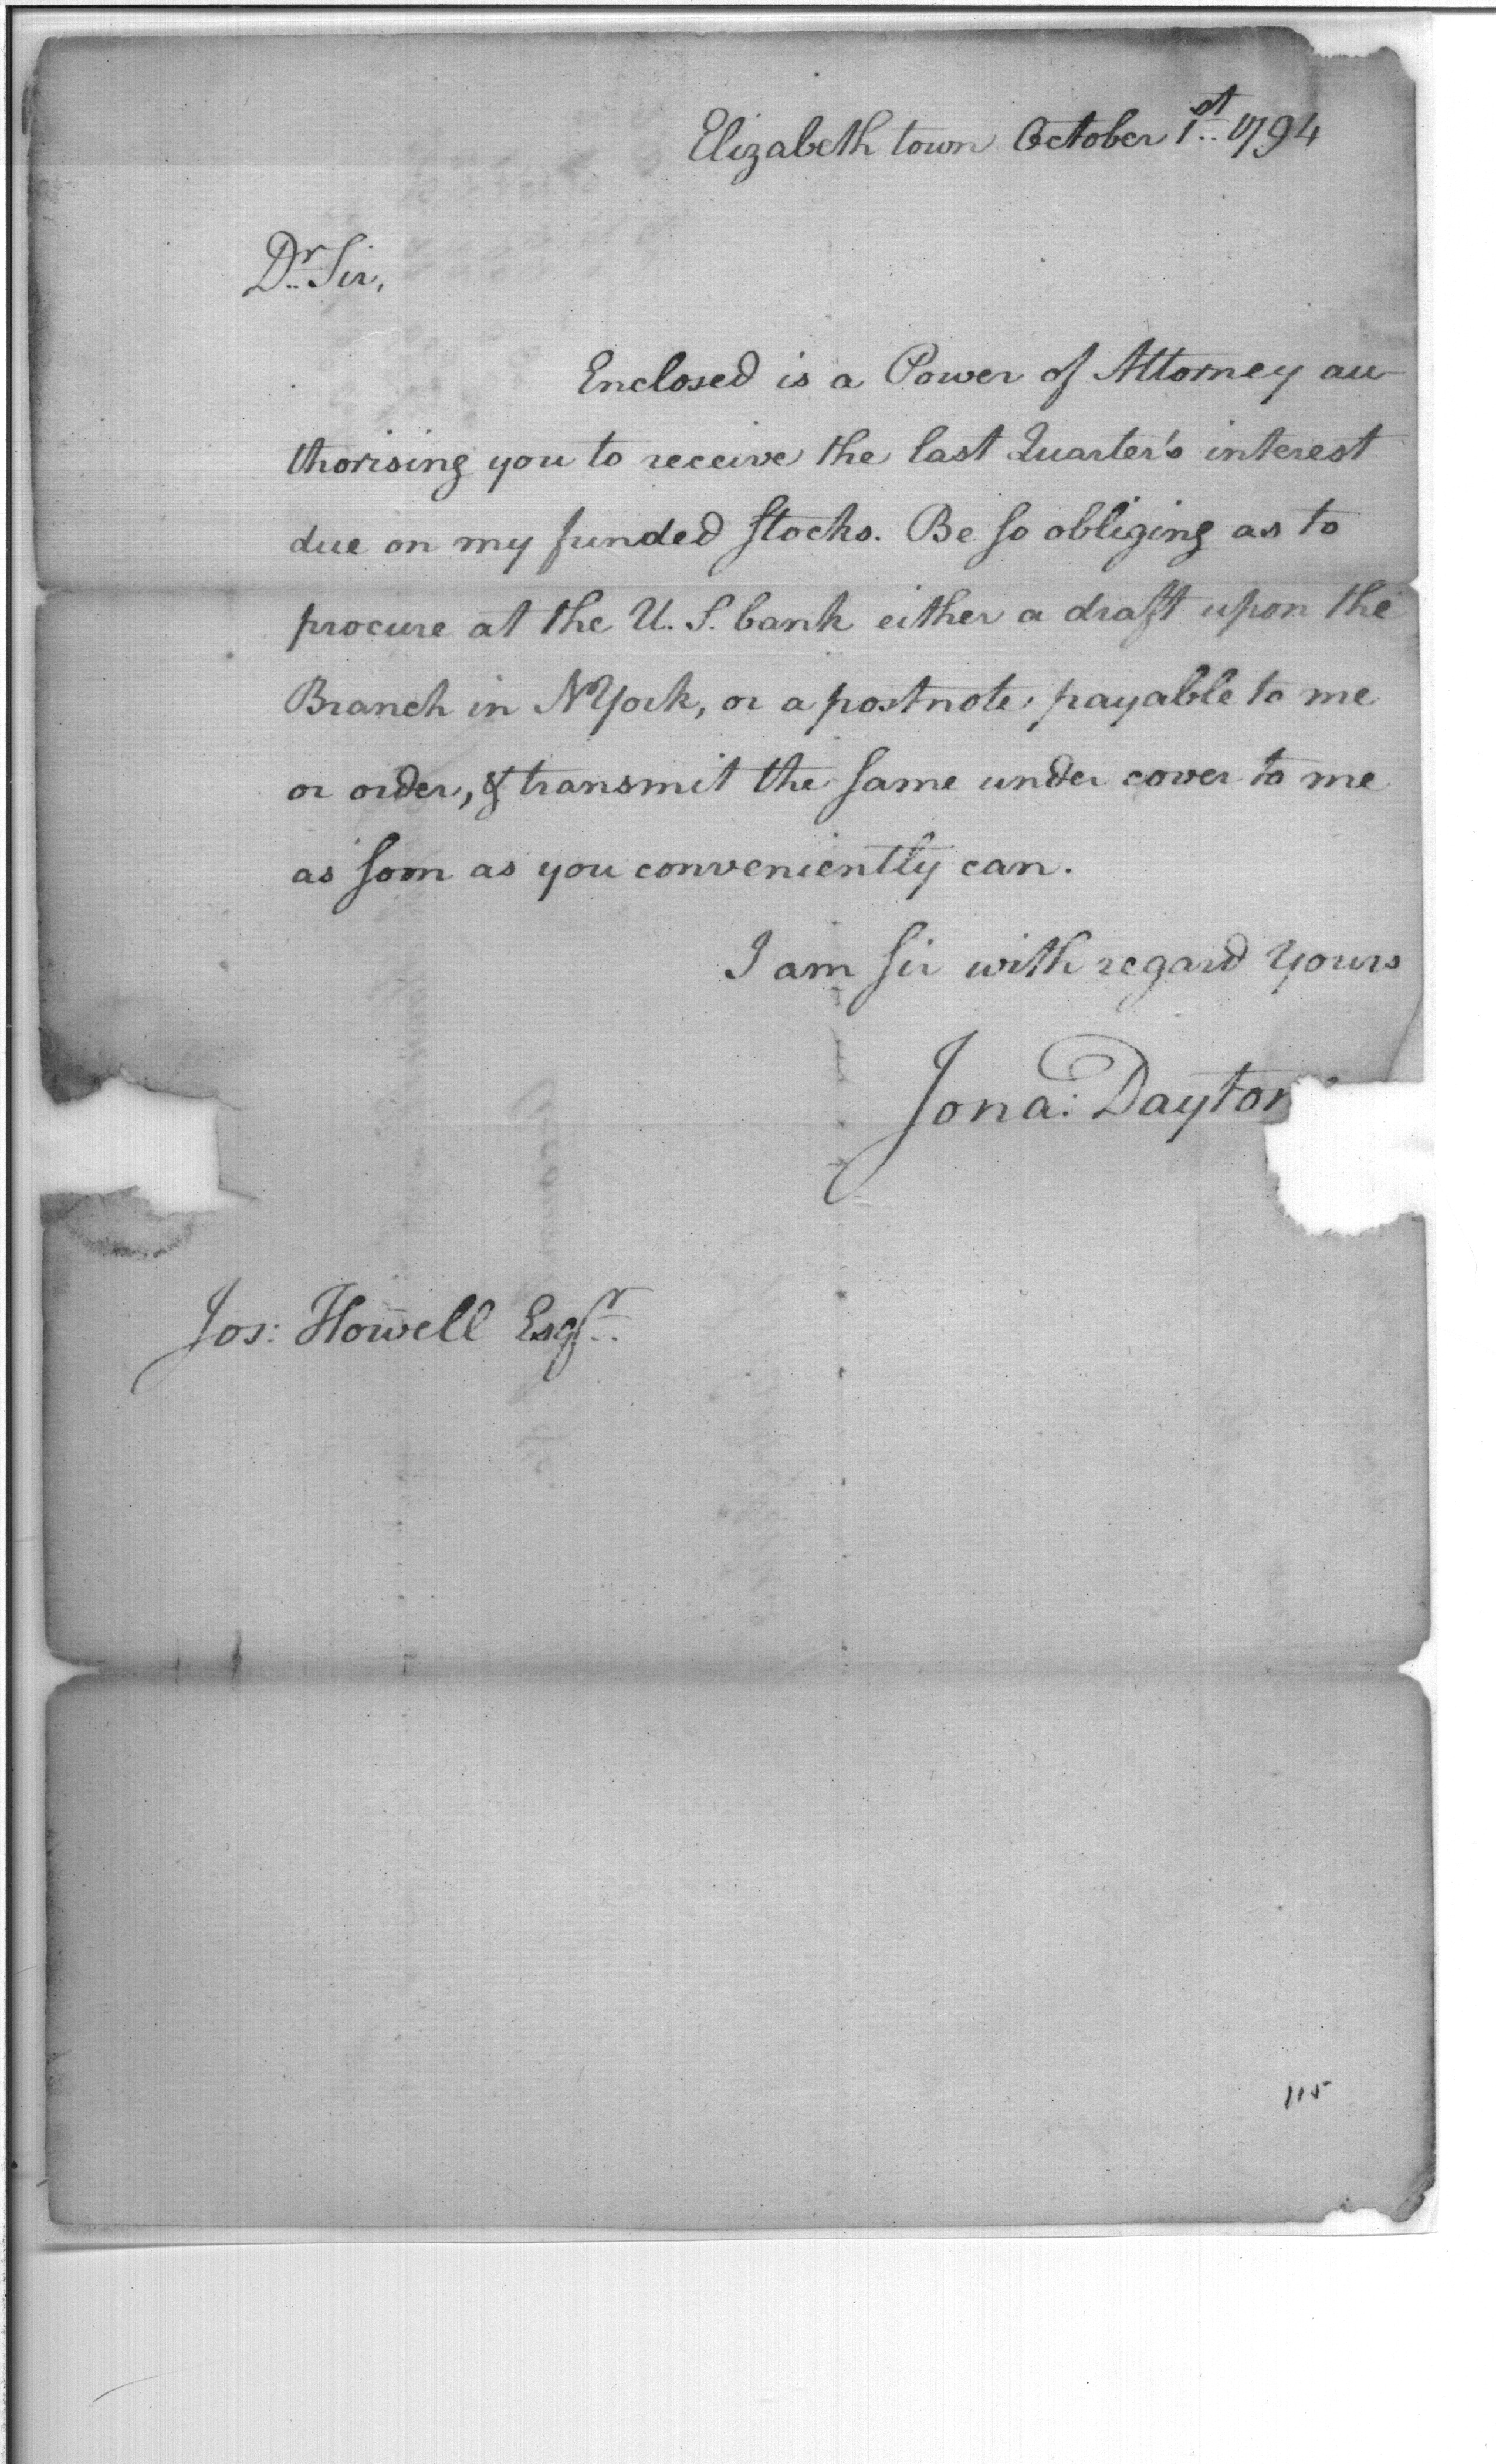 Elizabeth town October 1st. 1794
Dr. Sir,
Enclosed is a Power of Attorney au-
thorising you to receive the last Quarter's interest
due on my funded stocks. Be so obliging as to
procure at the U. S. bank either a draft upon the
Branch in NYork, or a postnote, payable to me
or order, & transmit the same under cover to me
as soon as you conveniently can.
I am sir with regard yours
Jona: Dayton
Jos: Howell Esqr.
115